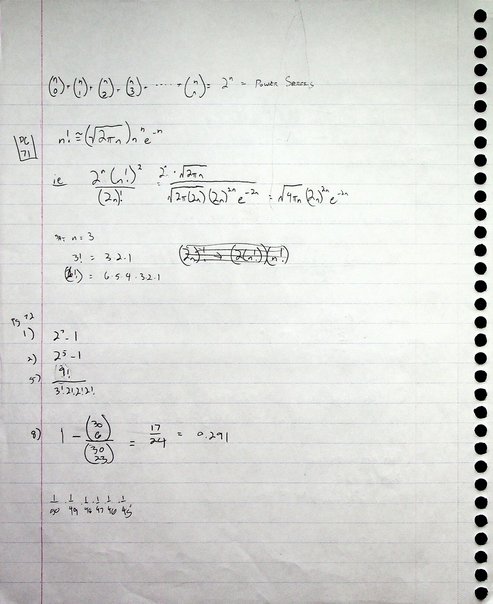 (n 0) + (n 1) + (n 2) + (n 3) + ..... + (n n) = 2ⁿ = Power Series
PG 71
n! ≅ (√2πn) nⁿ e⁻ⁿ
ie 2ⁿ(n!)² / (2n)! = 2ⁿ·√2πn / √2π(2n) (2n)²ⁿ e⁻²ⁿ = √4πn (2n)²ⁿ e⁻²ⁿ
n = 3
3! = 3·2·1
(6!) = 6·5·4·3·2·1
Pg 72
1) 2⁷ - 1
2) 2⁵ - 1
5) 9! / 3!2!2!2!
8) 1 - (30 6) / (30 23) = 17/24 = 0.291
1/50 · 1/49 · 1/48 · 1/47 · 1/46 · 1/45